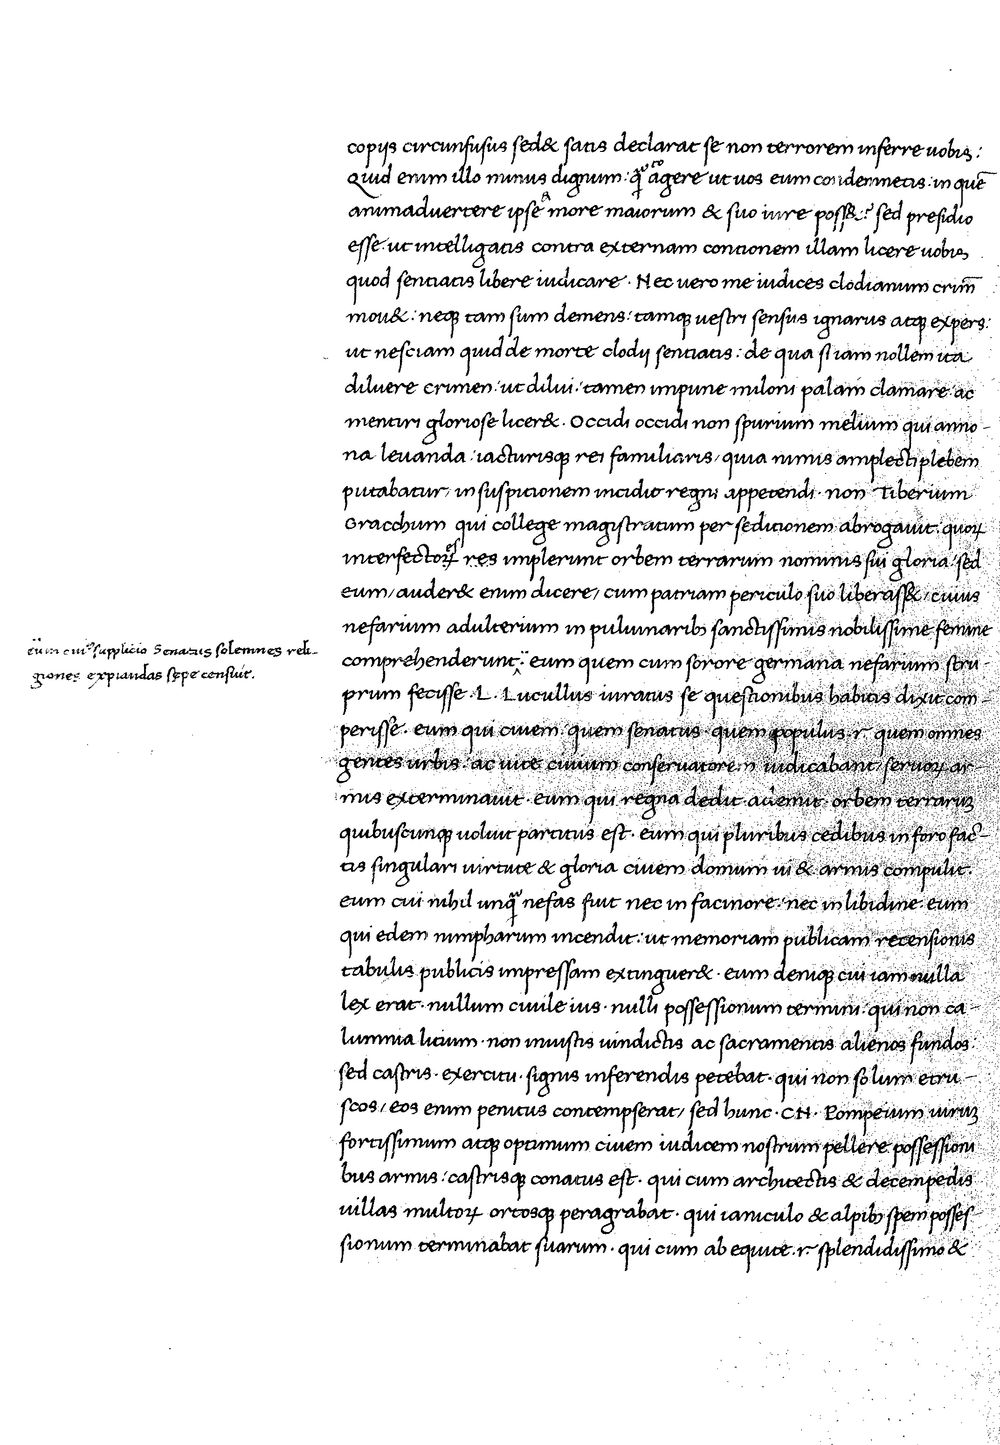 copijs circunfusus sed& satis declarat se non terrorem inferre uobis:
Quid enim illo minus dignum: q̃ cogere ut uos eum condemnetis in quē
animadvertere ipse a more maiorum & suo iure poss&: sed presidio
esse ut intelligatis contra externam contionem illam licere uobis
quod sentiatis libere iudicare. Nec uero me iudices clodianum crim̄
mou&: neq̨ tam sum demens: tamq̨ uestri sensus ignarus atq̨ expers:
ut nesciam quid de morte clodij sentiatis: de qua si iam nollem ita
diluere crimen: ut dilui: tamen impune miloni palam clamare ac
mentiri gloriose licer&. Occidi occidi non spurium melium qui anno-
na leuanda: iacturisq̨ rei familiaris/ quia nimis amplecti plebem
putabatur/ in suspicionem incidit regni appetendi. non Tiberium
Gracchum qui college magistratum per seditionem abrogauit. quoꝝ
interfectoꝝ res implerunt orbem terrarum nominis sui gloria: sed
eum/ auder& enim dicere/ cum patriam periculo suo liberass&/ cuius
nefarium adulterium in puluinarib; sanctissimis nobilissime femine
comprehenderunt: eum quem cum sorore germana nefarium stu-
eum cui' supplicio Senatus solemnes reli-
giones expiandas sepe censuit.
prum fecisse. L. Lucullus iuratus se questionibus habitis dixit com-
perisse. eum qui ciuem quem senatus quem populus .r. quem omnes
gentes urbis. ac uite ciuium conseruatorem iudicabant seruoꝝ ar-
mis exterminauit. eum qui regna dedit ademit. orbem terraruꝫ
quibuscunq̨ uoluit partitus est. eum qui pluribus cedibus in foro fac-
tis singulari uirtute & gloria ciuem domum ui & armis compulit.
eum cui nihil unq̃ nefas fuit nec in facinore: nec in libidine. eum
qui edem nimpharum incendit: ut memoriam publicam recensionis
tabulis publicis impressam extinguer&. eum deniq̨ cui iam nulla
lex erat. nullum ciuile ius. nulli possessionum termini. qui non ca-
lumnia litium. non iniustis uindictis ac sacramentis alienos fundos
sed castris. exercitu. signis inferendis petebat. qui non solum etru-
scos/ eos enim penitus contempserat/ sed hunc .CN. Pompeium uiruꝫ
fortissimum atq̨ optimum ciuem iudicem nostrum pellere possessioni
bus armis: castrisq̨ conatus est. qui cum architectis & decempedis
uillas multoꝝ ortosq̨ peragrabat. qui ianiculo & alpib; spem posses
sionum terminabat suarum. qui cum ab equite .r. splendidissimo &